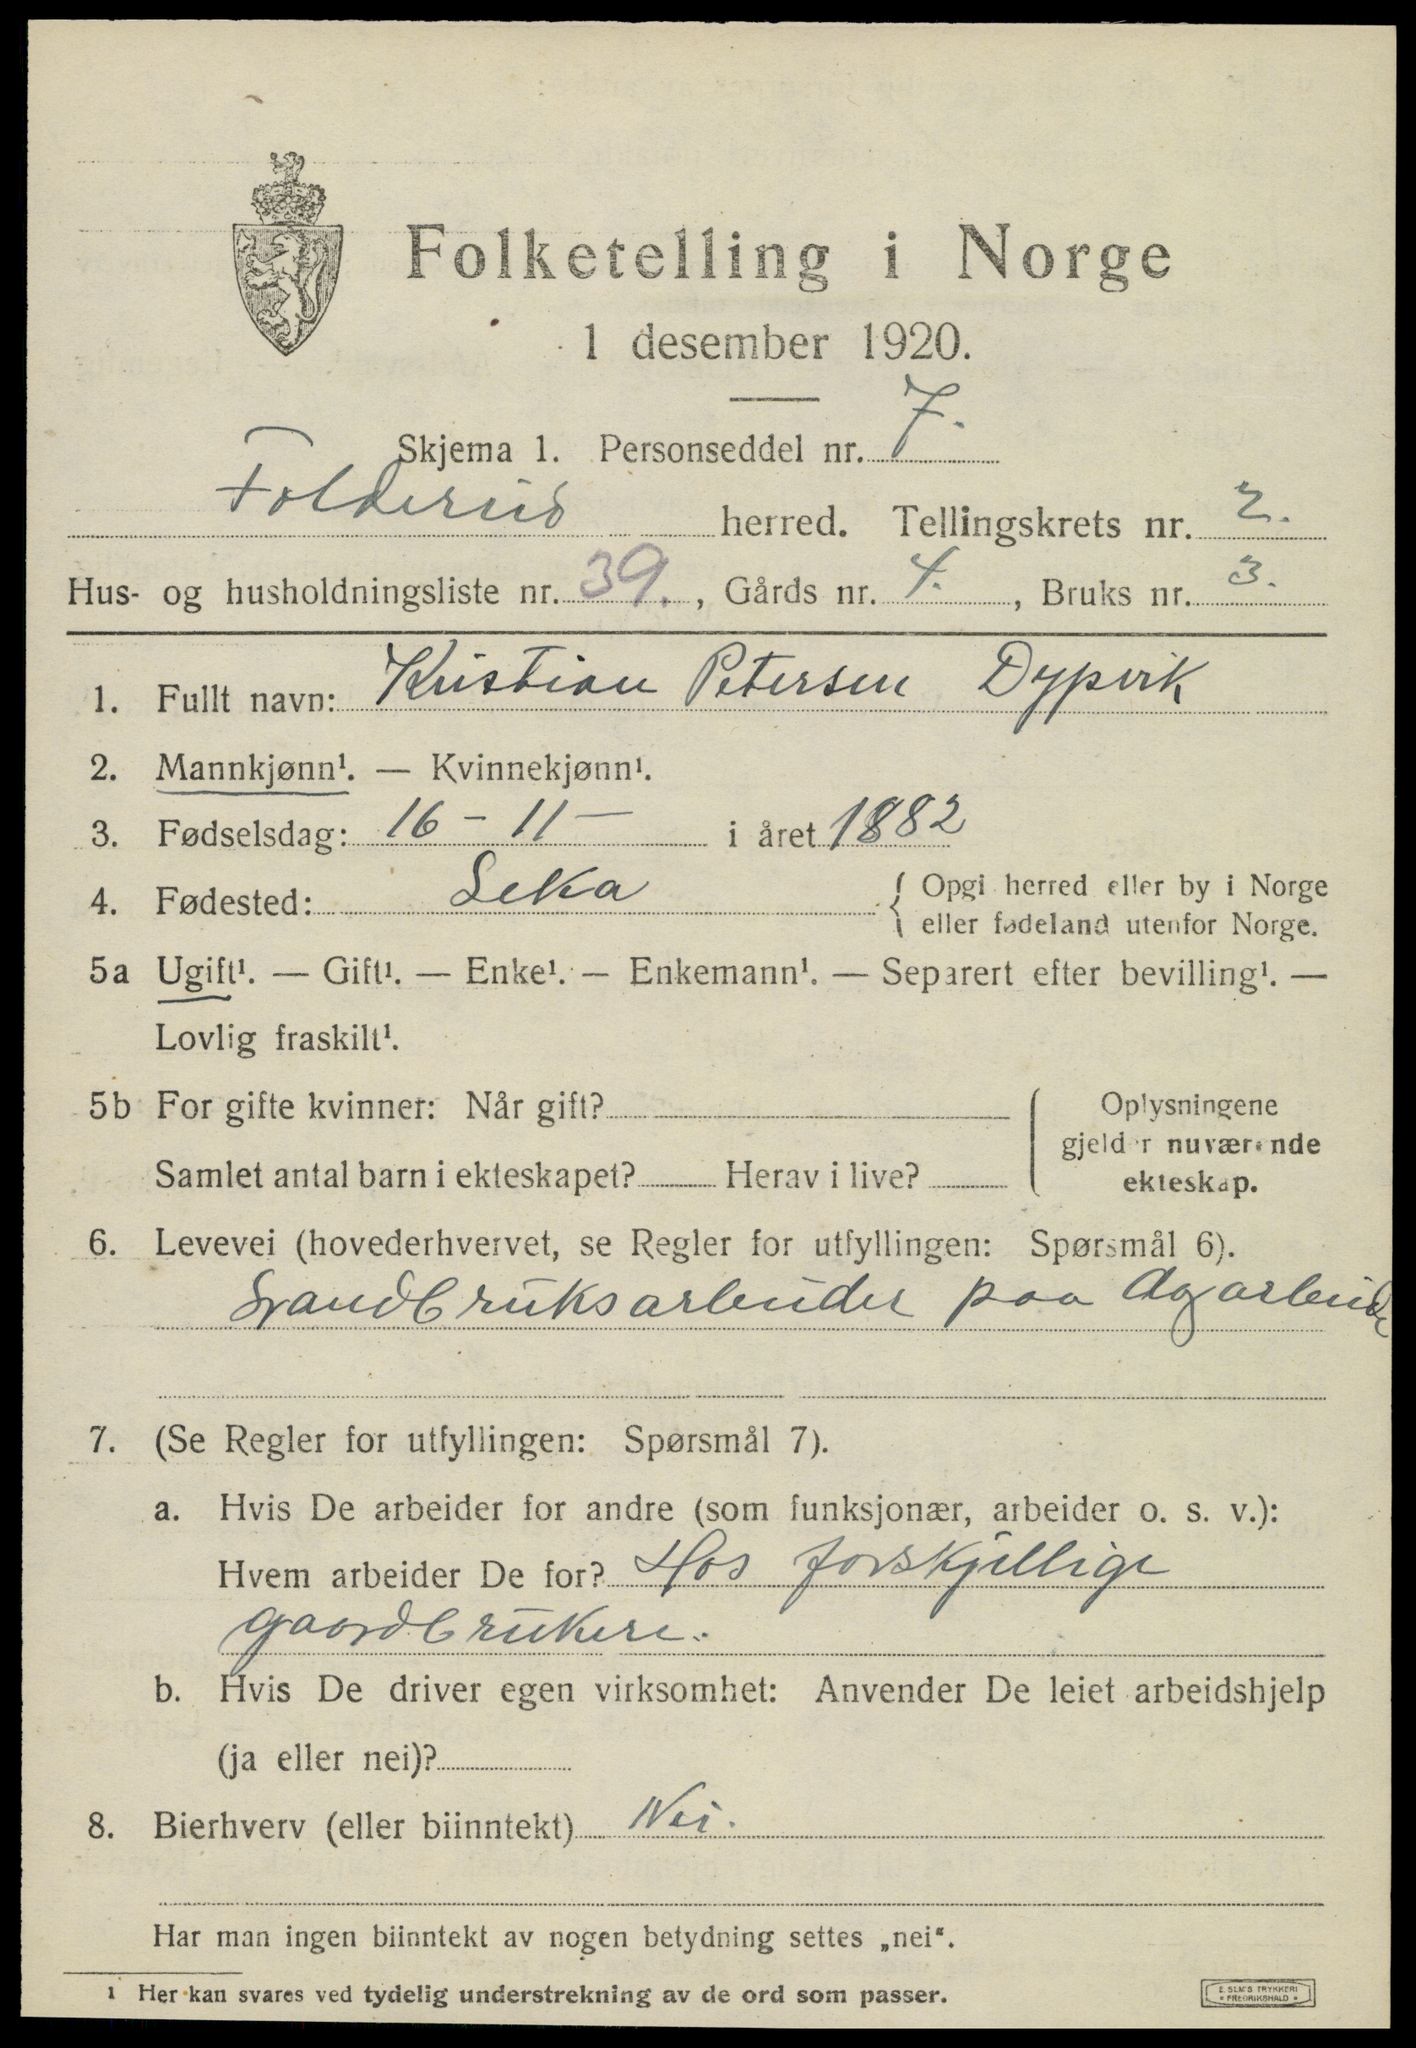 Folketelling i Norge
1 desember 1920.
Skjema 1. Personseddel nr. 7.
Foldereid herred. Tellingskrets nr. 2.
Hus- og husholdningsliste nr. 39., Gårds nr. 4., Bruks nr. 3.
1. Fullt navn: Kristian Petersen Dypvik
2. Mannkjønn¹. — Kvinnekjønn¹.
3. Fødselsdag: 16 - 11 - i året 1882
4. Fødested: Leka { Opgi herred eller by i Norge
eller fødeland utenfor Norge.
5a Ugift¹. — Gift¹. — Enke¹. — Enkemann¹. — Separert efter bevilling¹. —
Lovlig fraskilt¹.
5b For gifte kvinner: Når gift?
Samlet antal barn i ekteskapet? Herav i live?
Oplysningene
gjelder nuværende
ekteskap.
6. Levevei (hovederhvervet, se Regler for utfyllingen: Spørsmål 6).
Grandbruksarbeider paa dagarbeide
7. (Se Regler for utfyllingen: Spørsmål 7).
a. Hvis De arbeider for andre (som funksjonær, arbeider o. s. v.):
Hvem arbeider De for? Hos forskjellige
gaardbrukere.
b. Hvis De driver egen virksomhet: Anvender De leiet arbeidshjelp
(ja eller nei)?
8. Bierhverv (eller biinntekt) Nei.
Har man ingen biinntekt av nogen betydning settes „nei“.
1 Her kan svares ved tydelig understrekning av de ord som passer.
E. SEM'S TRYKKERI
FREDRIKSHALD